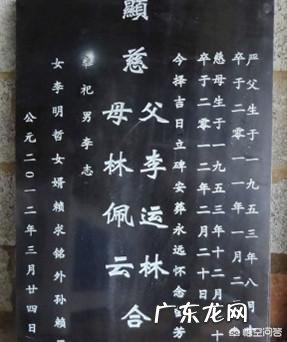 严父生于一九五三年八月十
卒于二零一一年一月二
慈母生于一九五三年十二月十
卒于二零一二年二月二十日
今择吉日立碑安葬永远怀念
芳
顯
慈父李运林
母林佩云合
奉祀男李志
女李明哲女婿賴求铭外孙賴
公元二0一二年三月廿四日
广东龙网
gdlwang.com
悟空问答